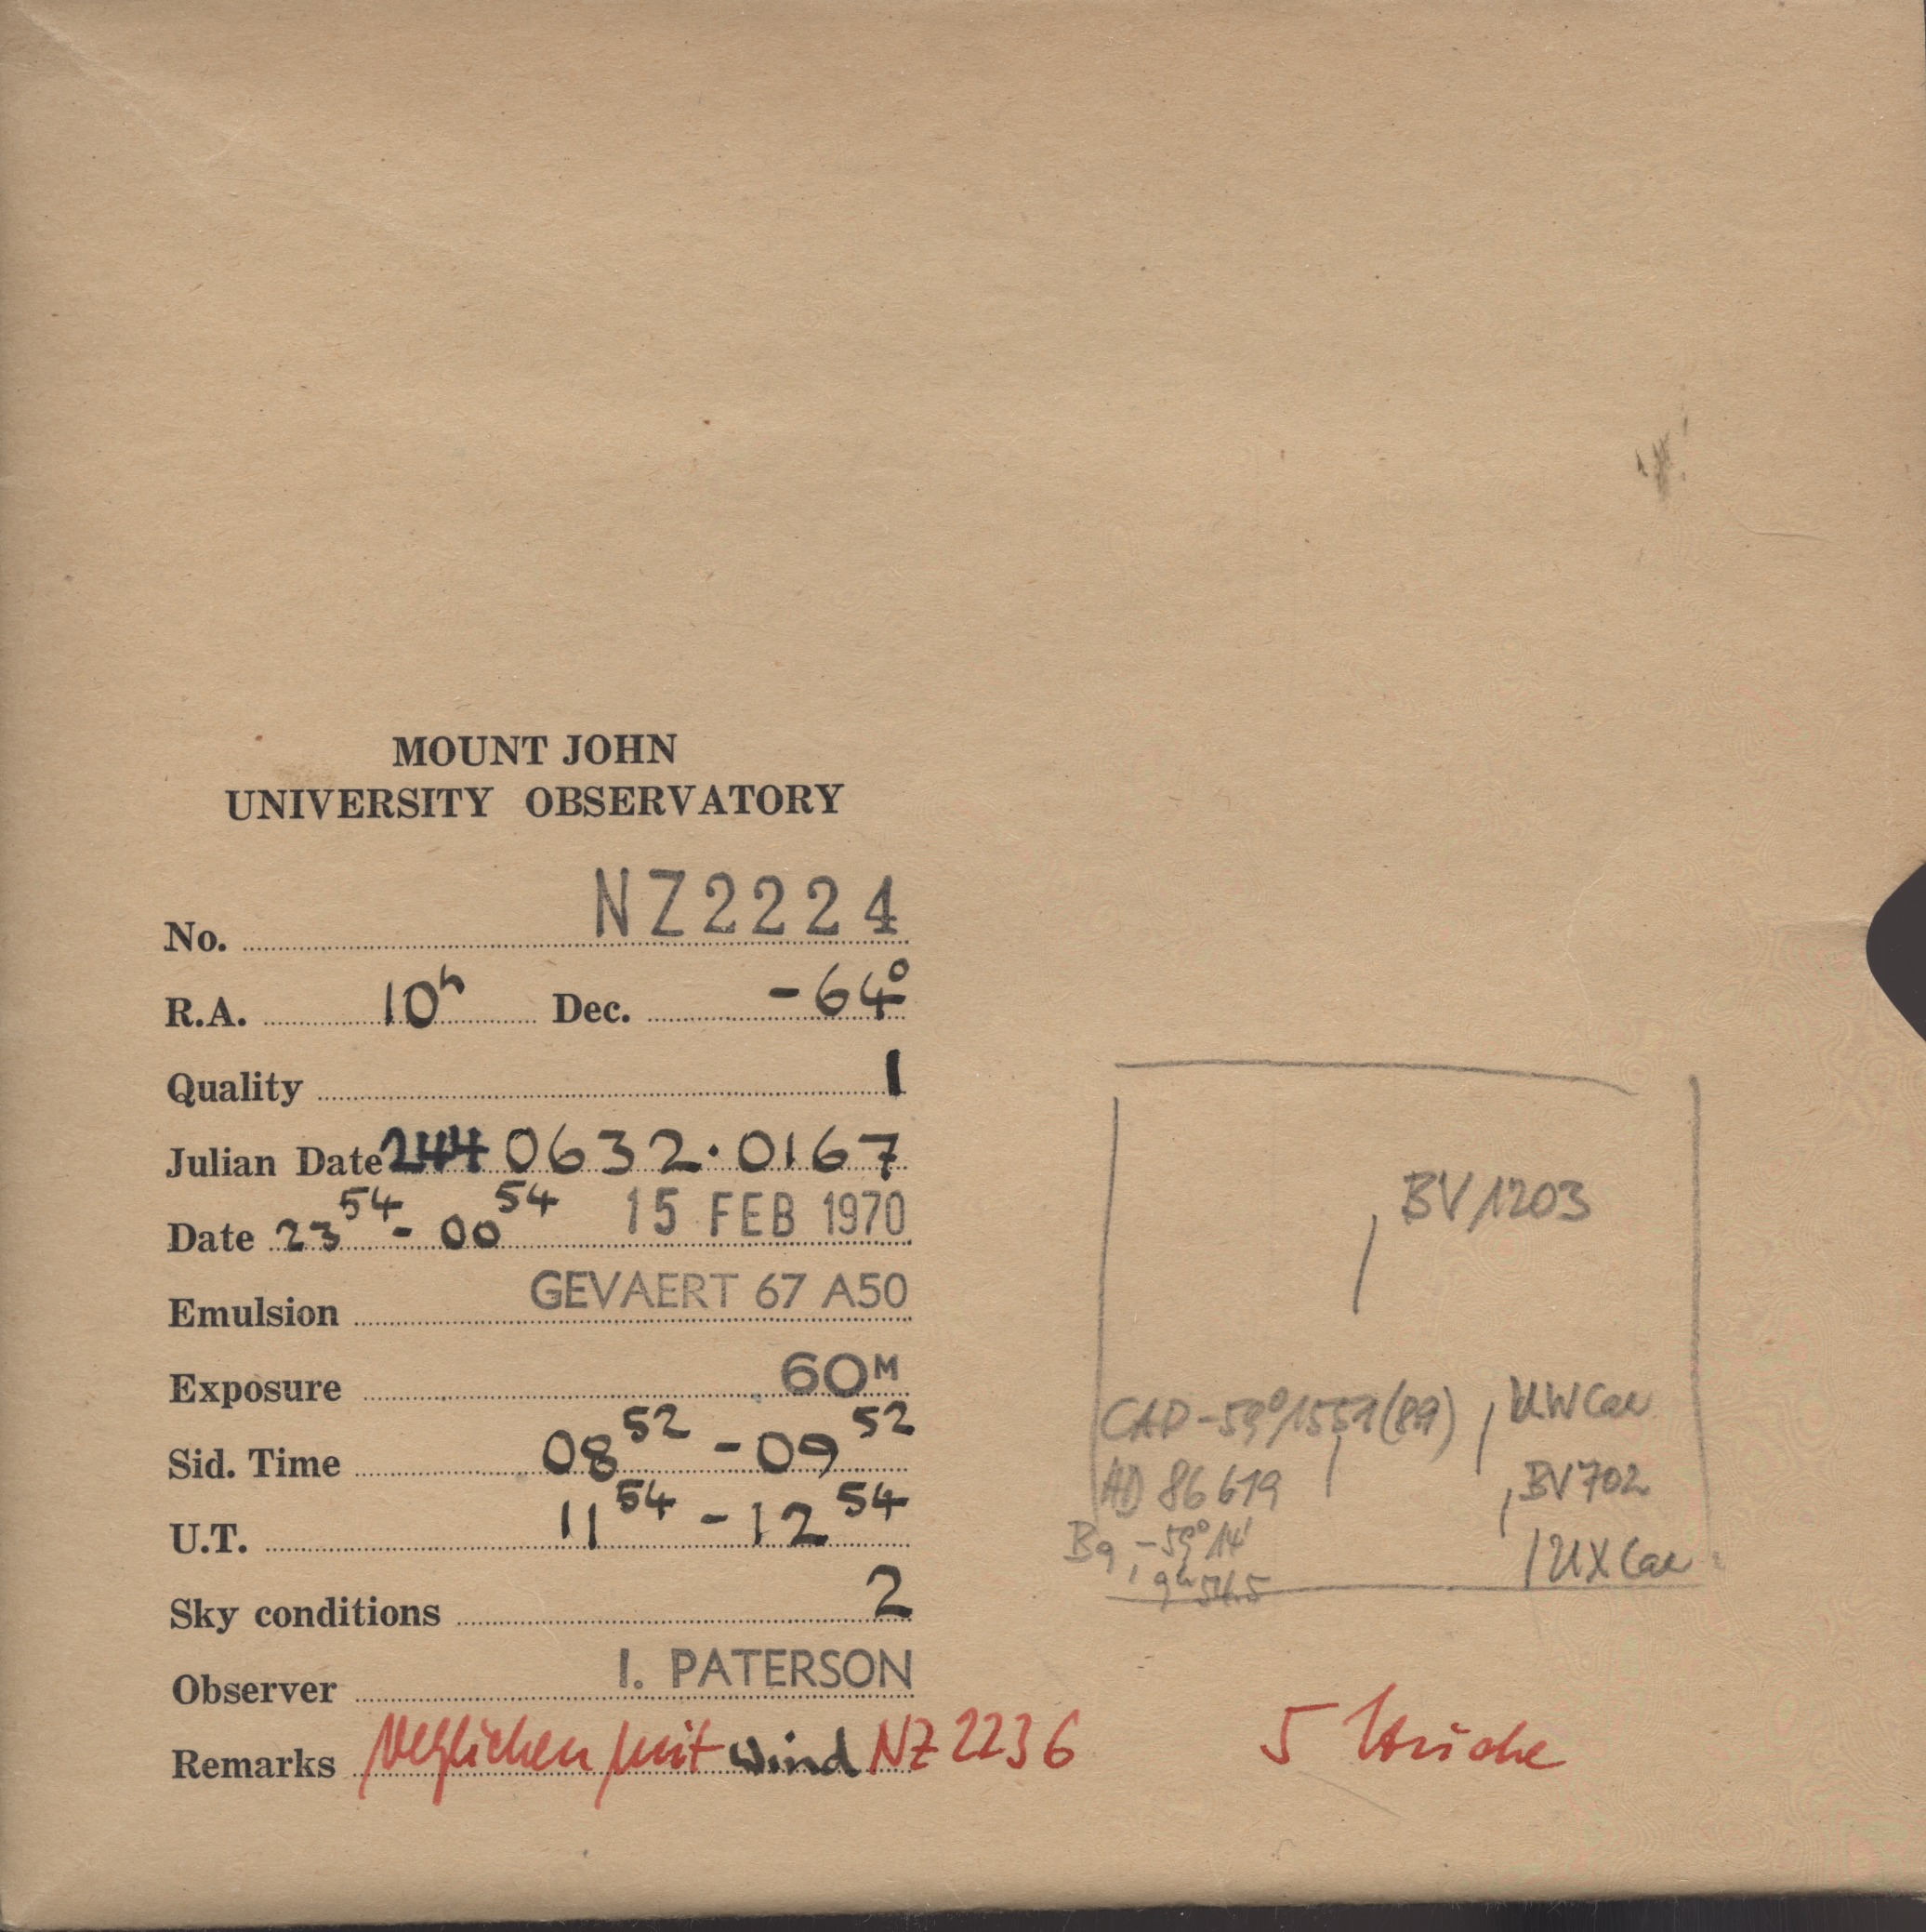 MOUNT JOHN
UNIVERSITY OBSERVATORY
No. NZ2224
R.A. 10h Dec. -64°
Quality 1
Julian Date 244 0632.0167
Date 23 54 - 00 54 15 FEB 1970
Emulsion GEVAERT 67 A50
Exposure 60M
Sid. Time 08 52 - 09 52
U.T. 11 54 - 12 54
Sky conditions 2
Observer I. PATERSON
Remarks verglichen mit wind NZ 2236
5 Striche
BV 1203
CAP -59° 1559 (89)
UW Car
HD 86619
BV 702
-59° 14'
UX Car
9h 54.5